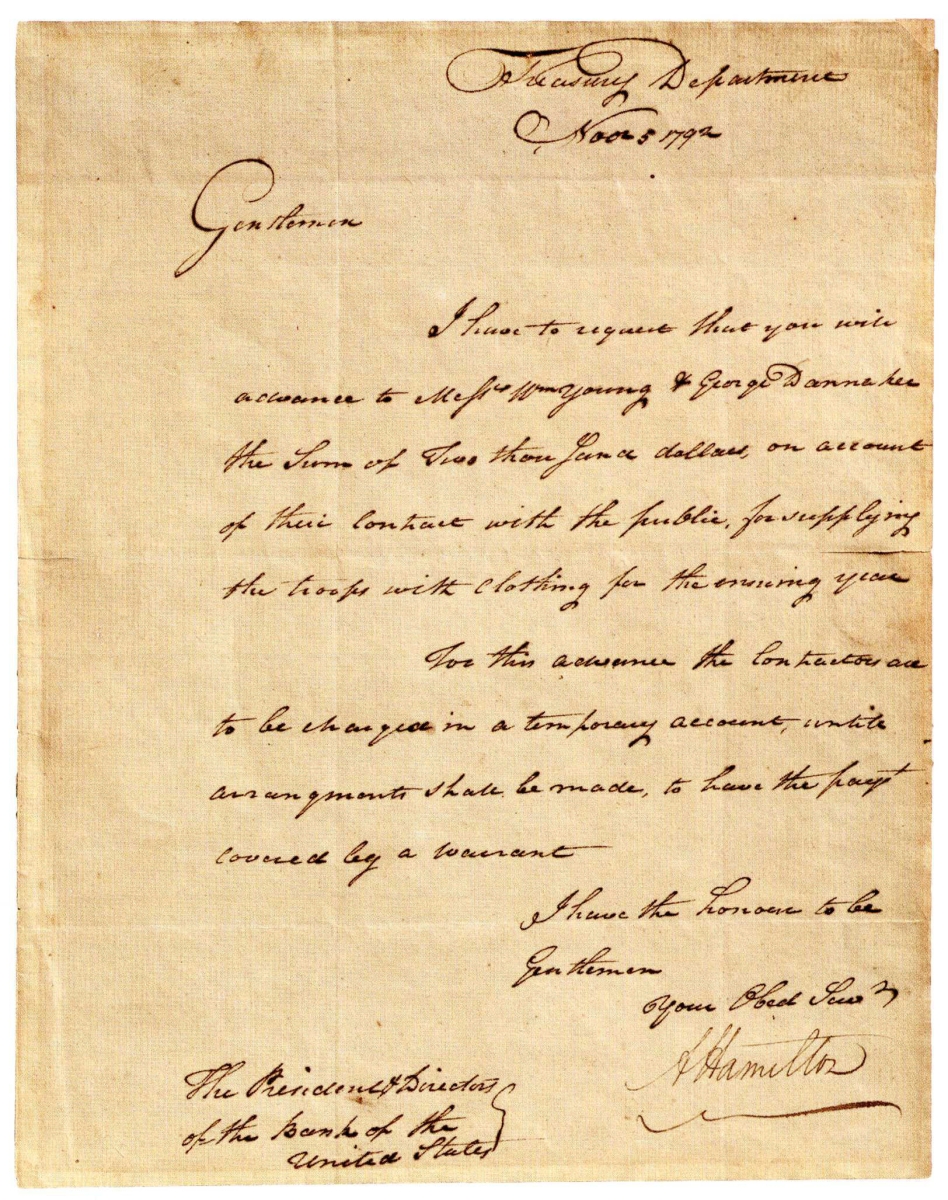 Treasury Department
Novr 5 1792
Gentlemen
I have to request that you will
advance to Messrs Wm Young & George Dannaker
the Sum of Two thousand dollars, on account
of their Contract with the public, for supplying
the troops with Clothing for the ensuing year
For this advance the Contractors are
to be charged in a temporary account, untill
arrangments shall be made, to have the payt
covered by a warrant
I have the honour to be
Gentlemen
Your Obed Servt
A Hamilton
The President & Directors
of the Bank of the
United States